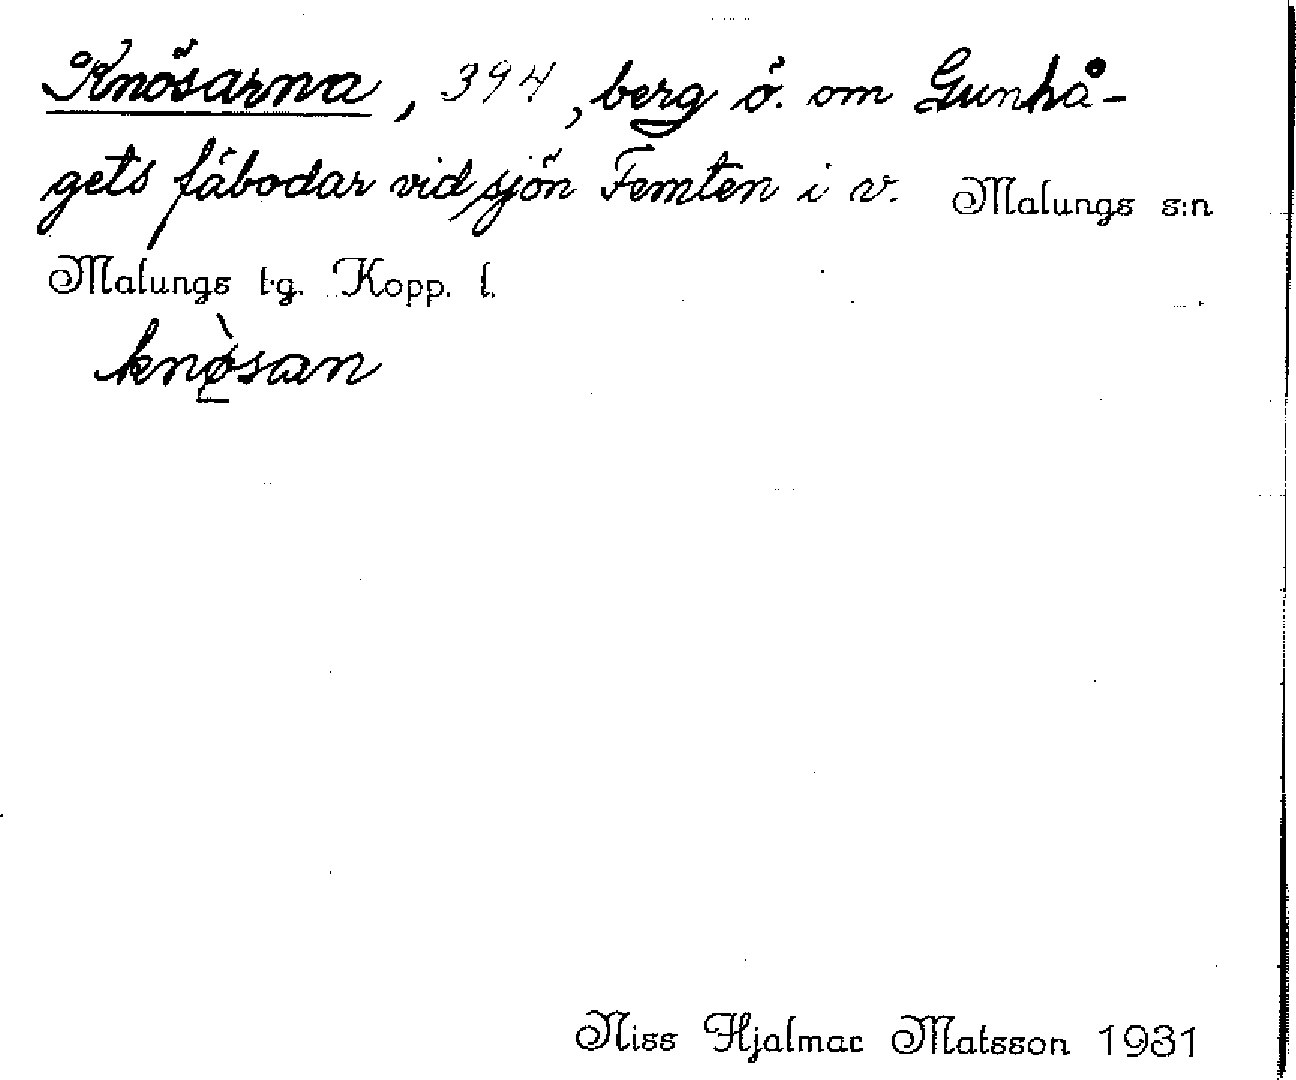 Knösarna, 394, berg ö. om Gunhå-
gets fäbodar vid sjön Femten i v. Malungs s:n
Malungs tg. Kopp. l.
knø̀san
Niss Hjalmar Matsson 1931